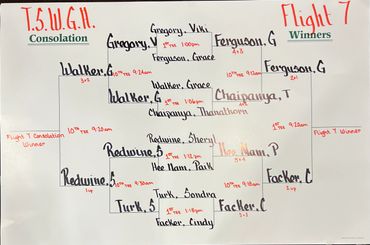 T.S.W.G.A.
Flight 7
Consolation
Winners
Gregory, Viki
Gregory, V
1st TEE 1:00pm
Ferguson, G
Ferguson, Grace
4+3
Walker, G
10th TEE 9:24am
10th TEE 9:12am
Ferguson, G
3+2
2+1
Walker, Grace
Walker, G
1st TEE 1:06pm
Chaipanya, T
Chaipanya, Thanathorn
Flight 7 Consolation
Winner
10th TEE 9:20am
10th TEE 9:20am
Flight 7 Winner
Redwine, Sheryl
Redwine, S
1st TEE 1:12pm
Hee Nam, P
Hee Nam, Paik
5+4
Redwine, S
10th TEE 9:30am
10th TEE 9:18am
Facker, C
1 up
2 up
Turk, Sondra
Turk, S
1st TEE 1:18pm
Facker, C
Facker, Cindy